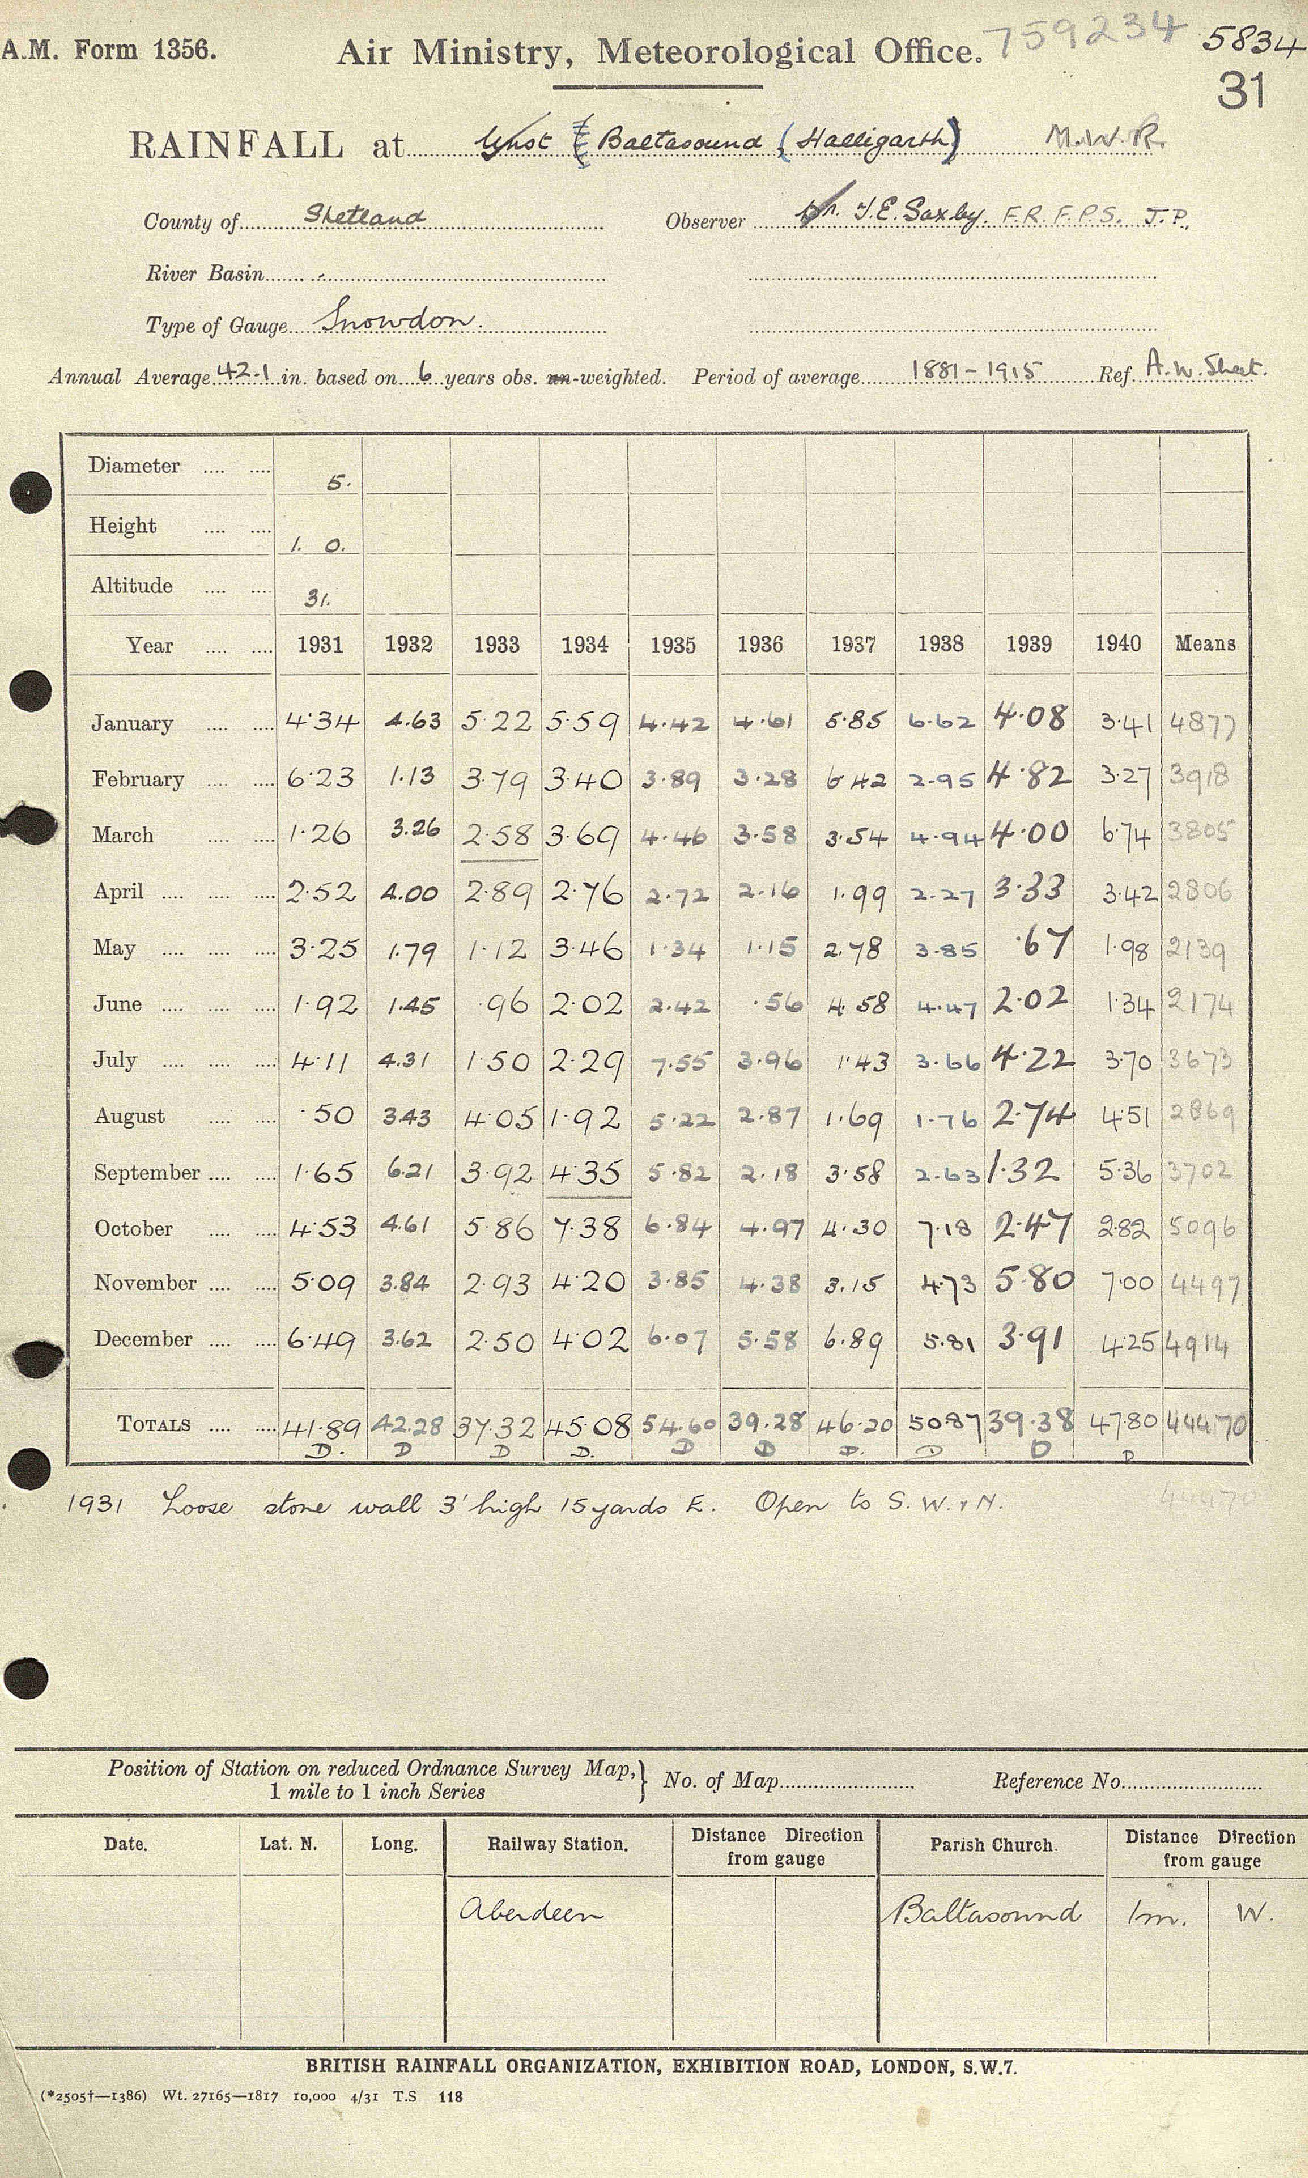 A.M. Form 1356. Air Ministry, Meteorological Office. 759234 5834
31
RAINFALL at Unst Baltasound (Halligarth) M.W.R.
County of Shetland Observer Dr. T.E. Saxby. F.R.F.P.S. J.P.
River Basin
Type of Gauge Snowdon.
Annual Average 42.1 in. based on 6 years obs. un-weighted. Period of average 1881-1915 Ref. A.W. Sheet.
Diameter 5.
Height 1. 0.
Altitude 31.
Year 1931 1932 1933 1934 1935 1936 1937 1938 1939 1940 Means
January 4.34 4.63 5.22 5.59 4.42 4.61 5.85 6.62 4.08 3.41 4877
February 6.23 1.13 3.79 3.40 3.89 3.28 6.42 2.95 4.82 3.27 3918
March 1.26 3.26 2.58 3.69 4.46 3.58 3.54 4.94 4.00 6.74 3805
April 2.52 4.00 2.89 2.76 2.72 2.16 1.99 2.27 3.33 3.42 2806
May 3.25 1.79 1.12 3.46 1.34 1.15 2.78 3.85 .67 1.98 2139
June 1.92 1.45 .96 2.02 2.42 .56 4.58 4.47 2.02 1.34 2174
July 4.11 4.31 1.50 2.29 7.55 3.96 1.43 3.66 4.22 3.70 3673
August .50 3.43 4.05 1.92 5.22 2.87 1.69 1.76 2.74 4.51 2869
September 1.65 6.21 3.92 4.35 5.82 2.18 3.58 2.63 1.32 5.36 3702
October 4.53 4.61 5.86 7.38 6.84 4.97 4.30 7.18 2.47 2.82 5096
November 5.09 3.84 2.93 4.20 3.85 4.38 3.15 4.73 5.80 7.00 4497
December 6.49 3.62 2.50 4.02 6.07 5.58 6.89 5.81 3.91 4.25 4914
TOTALS 41.89 42.28 37.32 45.08 54.60 39.28 46.20 50.87 39.38 47.80 44470
D. D D D. D D D. D D D
44470
1931 Loose stone wall 3' high 15 yards E. Open to S. W. & N.
Position of Station on reduced Ordnance Survey Map, } No. of Map Reference No.
1 mile to 1 inch Series
Date. Lat. N. Long. Railway Station. Distance Direction from gauge Parish Church. Distance Direction from gauge
Aberdeen Baltasound 1m. W.
BRITISH RAINFALL ORGANIZATION, EXHIBITION ROAD, LONDON, S.W.7.
(*2505†—1386) Wt. 27165—1817 10,000 4/31 T.S 118